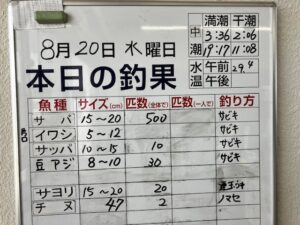 満潮 干潮
中 3:36 2:06
潮 19:17 11:08
水 午前 29.4
温 午後
8月20日 水曜日
本日の釣果
魚種 サイズ(cm) 匹数(全体で) 匹数(一人で) 釣り方
サバ 15～20 500 サビキ
イワシ 5～12 サビキ
サッパ 10～15 10 サビキ
豆アジ 8～10 30 サビキ
サヨリ 15～20 20
チヌ 47 2 ノマセ